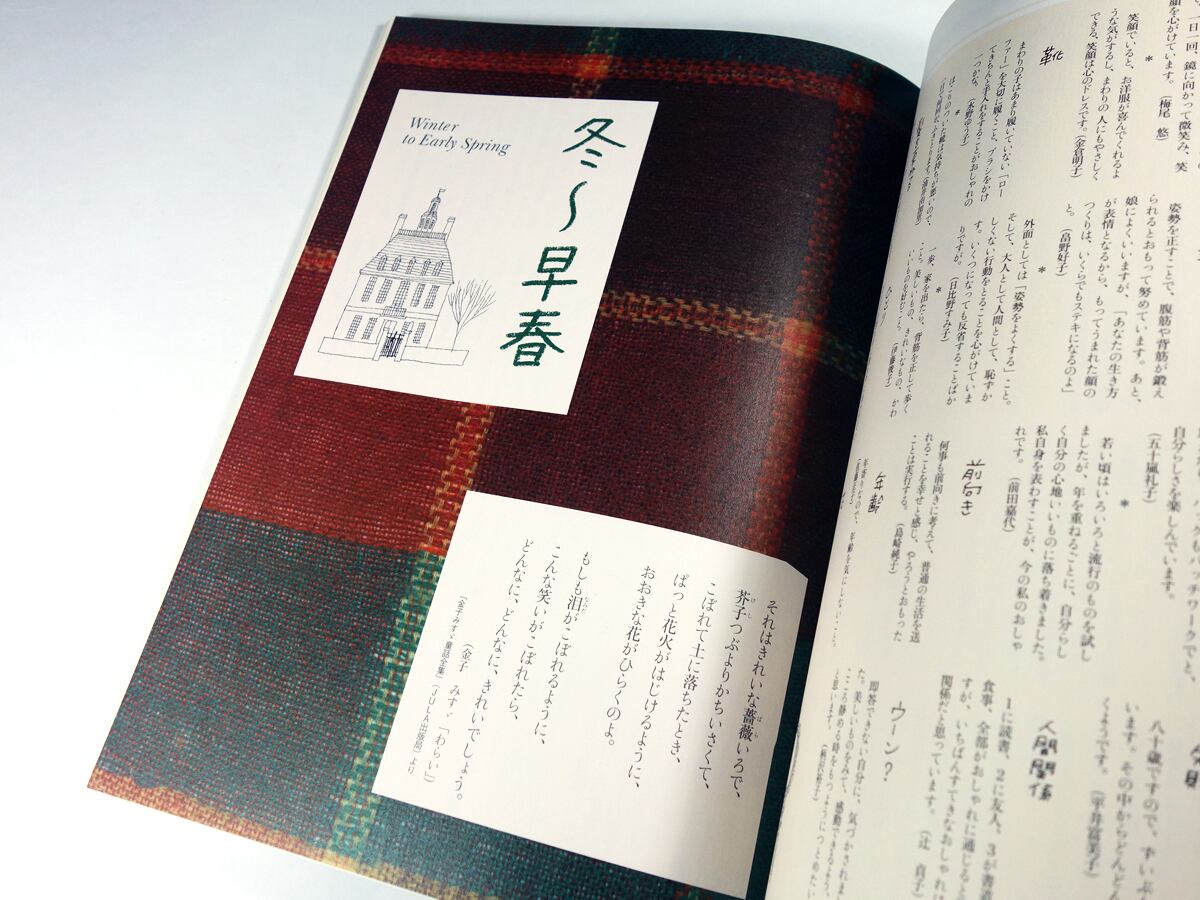 冬〜早春
Winter
to Early Spring
それはきれいな薔薇いろで、
芥子つぶよりかちいさくて、
こぼれて土に落ちたとき、
ぱっと花火がはじけるように、
おおきな花がひらくのよ。
もしも泪がこぼれるように、
こんな笑いがこぼれたら、
どんなに、どんなに、きれいでしょう。
(金子 みすゞ「わらい」)
「金子みすゞ童話全集」「JULA出版局」より
一日一回、鏡に向かって微笑み、笑
顔を心がけています。(梅尾 悠)
*
笑顔でいると、お洋服が喜んでくれるよ
うな気がするし、まわりの人にもやさしく
できる。笑顔は心のドレスです。(金倉明子)
靴
まわりの子はあまり履いていない「ロー
ファー」を大切に履くこと、ブラシをかけ
てきちんと手入れをすることがおしゃれの
一つかな。(永野ゆう子)
*
ほこりのついた靴は気持ちが悪いので、
姿勢を正すことで、腹筋や背筋が鍛え
られるとおもって努めています。あと、
娘によくいいますが、「あなたの生き方
が表情となるから、もってうまれた顔の
つくりは、いくらでもステキになるのよ」
と。(畠野好子)
*
外面としては「姿勢をよくする」こと。
そして、大人として人間として、恥ずか
しくない行動をとることを心がけていま
す。いくつになっても反省することばか
りですが。(日比野すみ子)
*
一歩、家を出たら、背筋を正して歩く
こと。美しいもの、きれいなもの、かわ
いいものを好むこころ。(伊藤俊子)
自分らしさを楽しんでいます。
(五十嵐礼子)
*
若い頃はいろいろと流行のものを試し
ましたが、年を重ねるごとに、自分らし
く自分の心地いいものに落ち着きました。
私自身を表わすことが、今の私のおしゃ
れです。(前田嘉代)
前向き
何事も前向きに考えて、普通の生活を送
れることを幸せと感じ、やろうとおもった
ことは実行する。(島崎純子)
年齢
八十歳ですので、
います。その中からどんどん
くようです。(平井富美子)
人間関係
1に読書、2に友人、3が書道
食事、全部がおしゃれに通じると
すが、いちばんすてきなおしゃれは
関係だと思っています。(辻 貞子)
ウーン?
即答できない自分に、気づかされまし
た。美しいものをみて、感動できるよう、
こころ静める時をもつようにつとめたい
と思います。